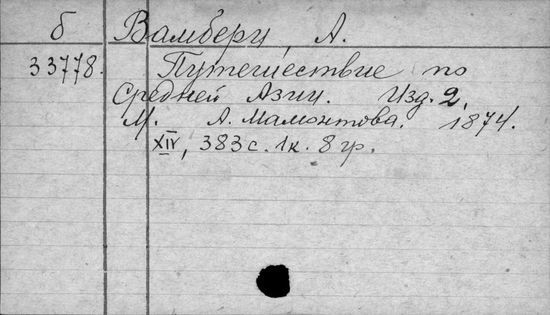 б Вамбери, А.
33778. Путешествие по
Средней Азии. Изд. 2.
М. А. Мамонтова. 1874.
XIV, 383 с. 1 к. 8 гр.